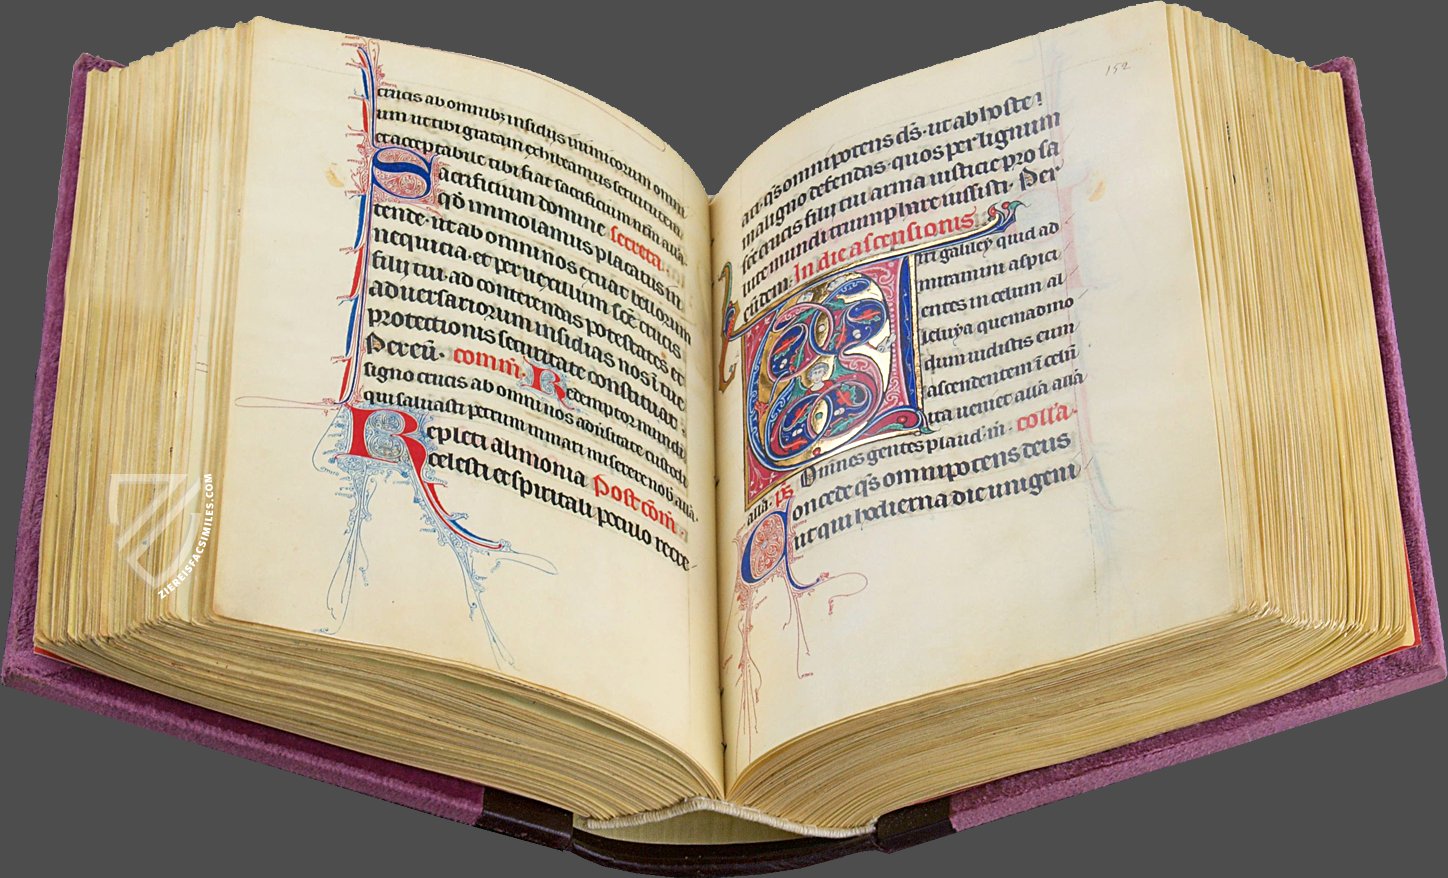 crucis ab omnibz insidijs inimicorum omni
um ut tibi gratam exhibeamus seruitutem
et acceptabile tibi fiat sacrificium nr̄m alła.
Sacrificium domine secreta.
qd̄ immolamus placatus in
tende. ut ab omni nos eruat bellorum
nequitia. et per uexillum sc̄e crucis
filij tui ad conterendas potestates et
aduersariorum insidias nos ī tue
protectionis securitate constituat.
Per eū. com̄m. Redemptor mundi
signo crucis ab omni nos aduersitate custodi
qui saluasti petrum in mari miserere nob. alła.
Repleti alimonia Post com̄.
celesti et spiritali poculo recre
152
ati. qs̄ omnipotens ds̄. ut ab hoste
maligno defendas. quos per lignum
sc̄e crucis filij tui arma iusticie pro sa
lute mundi triumphare iussisti. Per
eundem. In die ascensionis
Uiri galiley quid ad
miramini aspici
entes in celum al
leluya quemadmo
dum uidistis eum
ascendentem ī celū
ita ueniet alła alła
alła. ps̄. Omnes gentes plaud. m. coll'a.
Concede qs̄ omnipotens deus
ut qui hodierna die unigeni
ZIEREISFACSIMILES.COM